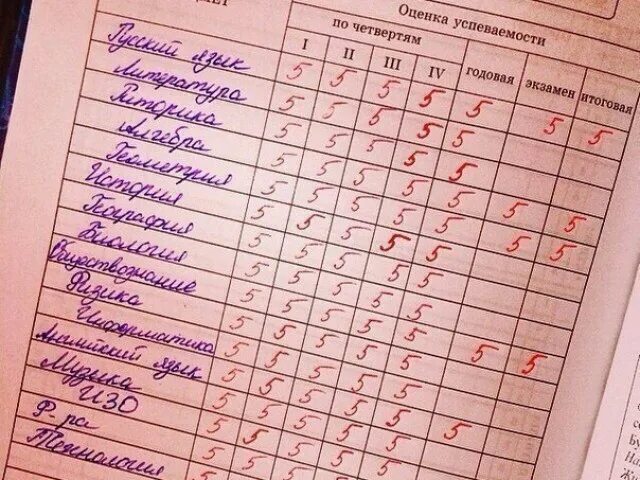 Оценка успеваемости
по четвертям
I II III IV годовая экзамен итоговая
Русский язык 5 5 5 5 5 5 5
Литература 5 5 5 5 5
Риторика 5 5 5 5 5
Алгебра 5 5 5 5 5 5 5
Геометрия 5 5 5 5 5 5 5
История 5 5 5 5 5
География 5 5 5 5 5
Биология 5 5 5 5 5
Обществознание 5 5 5 5 5 5 5
Физика 5 5 5 5 5
Информатика 5 5 5 5 5
Английский язык 5 5 5 5 5 5
Музыка 5 5 5 5 5
ИЗО 5 5 5 5
Ф-ра 5 5 5 5
Технология